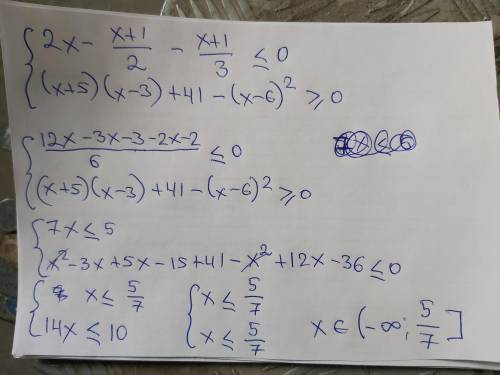 { 2x - (x+1)/2 - (x+1)/3 ≤ 0
(x+5)(x-3) + 41 - (x-6)² ≥ 0
{ (12x - 3x - 3 - 2x - 2)/6 ≤ 0
(x+5)(x-3) + 41 - (x-6)² ≥ 0
{ 7x ≤ 5
x² - 3x + 5x - 15 + 41 - x² + 12x - 36 ≤ 0
{ x ≤ 5/7 { x ≤ 5/7
14x ≤ 10 x ≤ 5/7 x ∈ (-∞; 5/7]